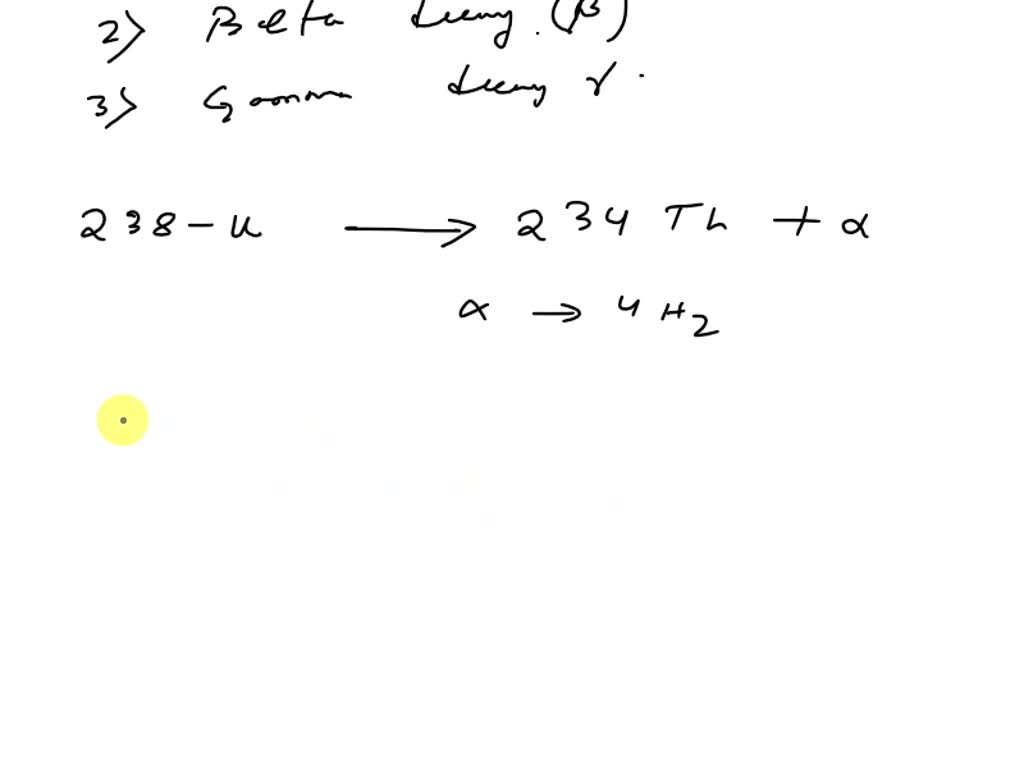 2) Beta decay. (β)
3) Gamma decay γ.
238-U → 234 Th + α
α → 4 H2